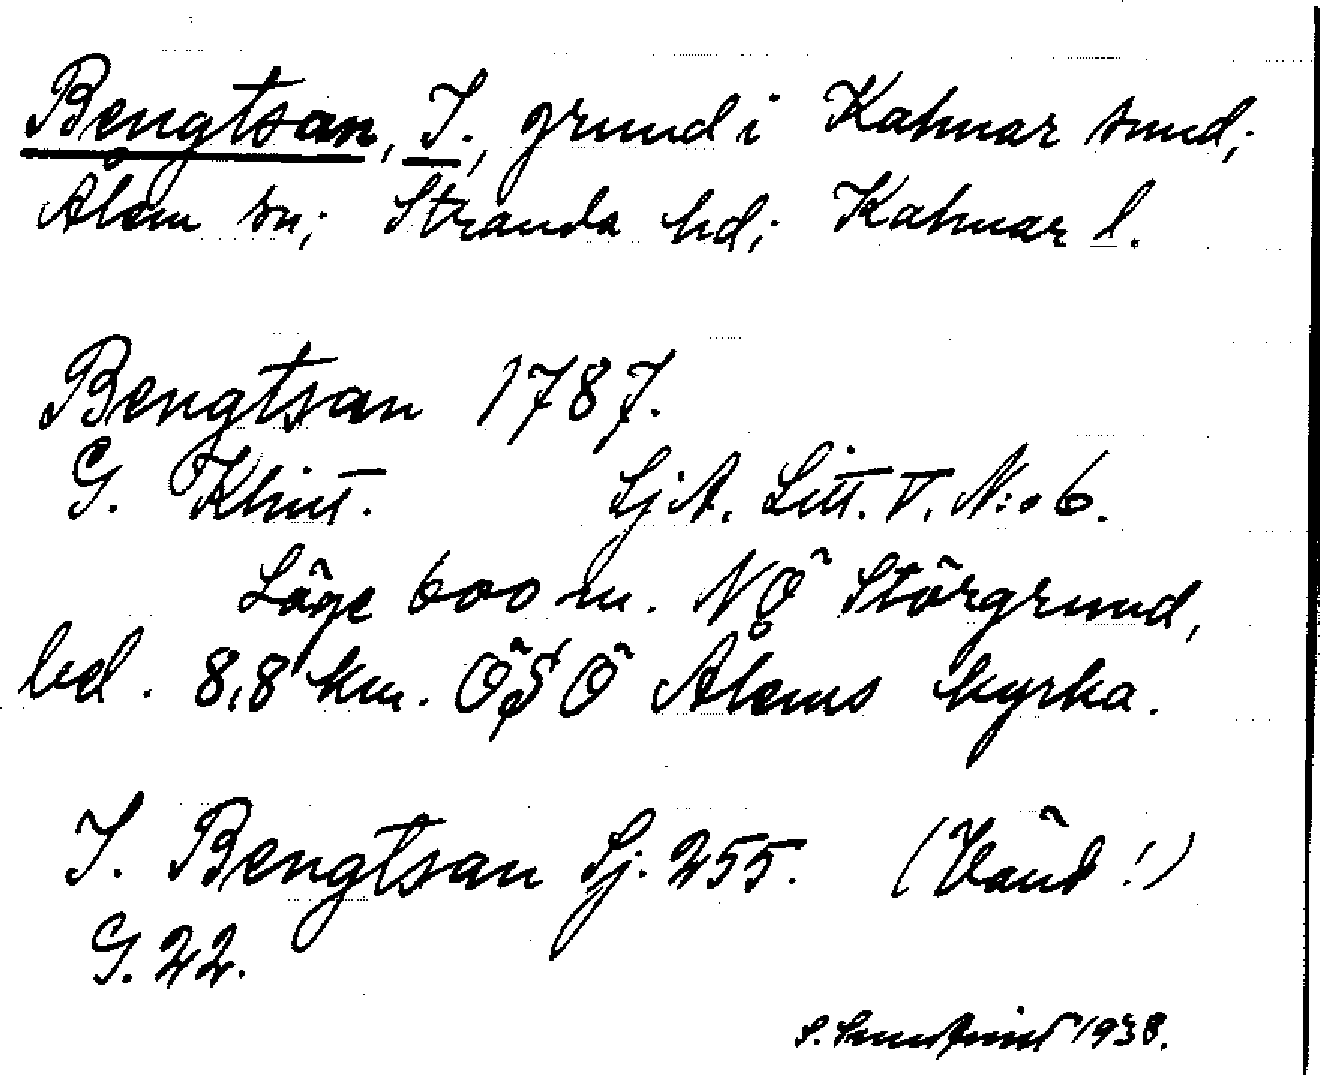 Bengtsan, I., grund i Kalmar sund;
Ålem sn; Stranda hd; Kalmar l.
Bengtsan 1787.
G. Klint. SjA. Litt. V. N:o 6.
Läge 600 m. NÖ Störgrund,
bel. 8,8 km. ÖSÖ Ålems kyrka.
I. Bengtsan Sj. 255. (Vänd!)
G. 22.
S. 1938.